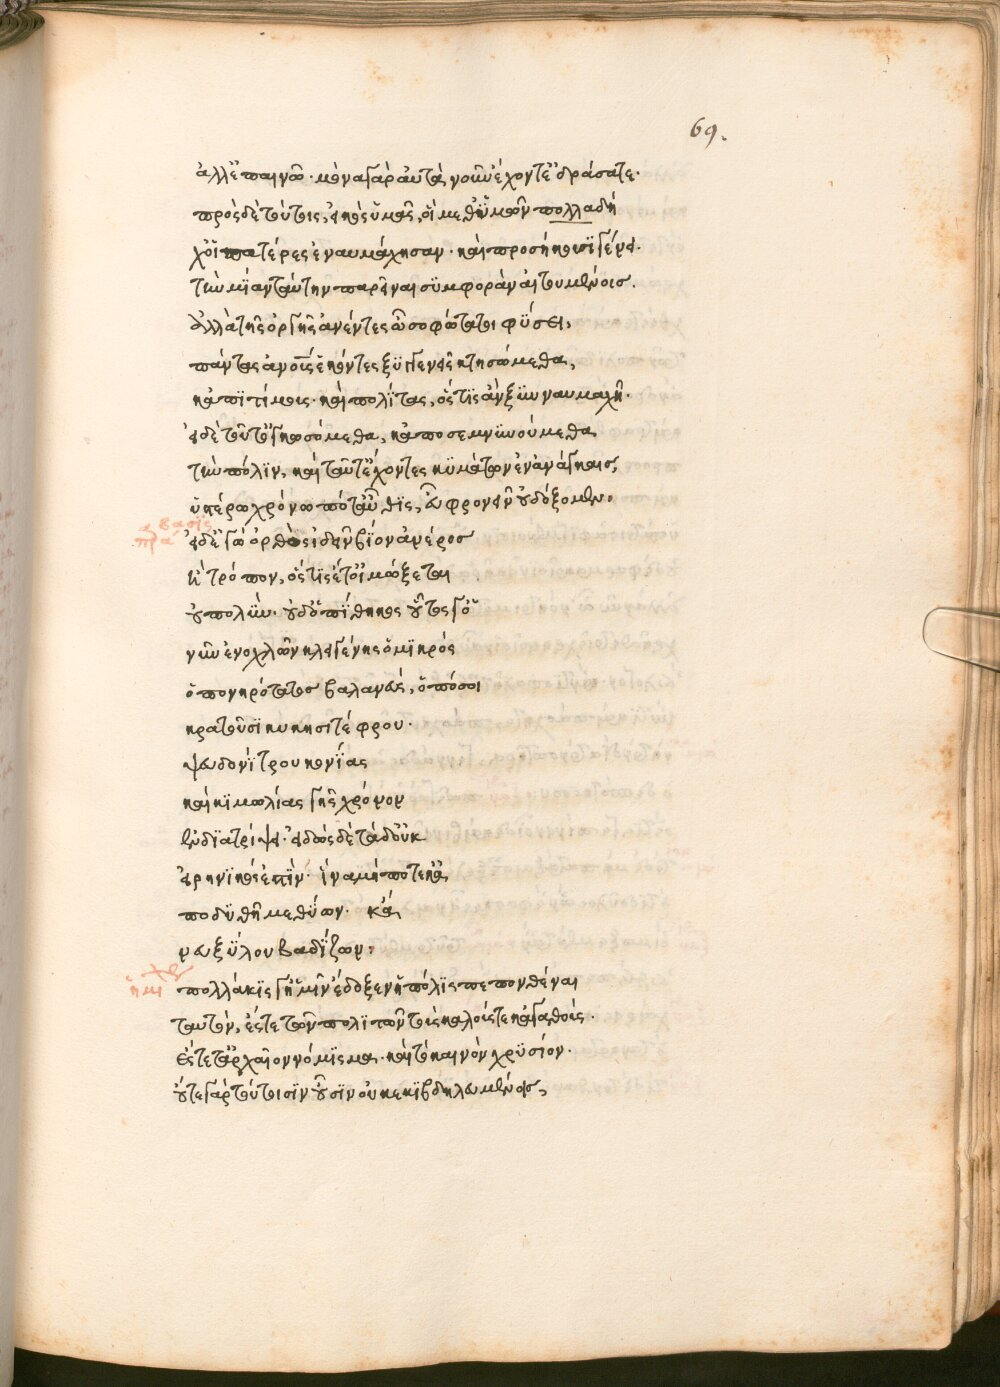 69.
ἀλλ' ἐπαινῶ· μόνα γὰρ αὐτὰ νοῦν ἔχοντ' ἐδράσατε·
πρὸς δὲ τούτοις, εἰκὸς ὑμᾶς, οἳ μεθ' ὑμῶν πολλὰ δὴ
χοἰ πατέρες ἐναυμάχησαν· καὶ προσήκουσι γένει·
τὴν μίαν ταύτην παρεῖναι συμφορὰν αἰτουμένοις.
ἀλλὰ τῆς ὀργῆς ἀνέντες ὦ σοφώτατοι φύσει,
πάντας ἀν<ος> ἑκόντες ξυγγενεῖς κτησώμεθα,
κἀπιτίμους· καὶ πολίτας, ὅστις ἂν ξυνναυμαχῇ·
εἰ δὲ τοῦτ' ὀγκωσόμεθα, κἀποσεμνυνούμεθα
τὴν πόλιν, καὶ ταῦτ' ἔχοντες κυμάτων ἐν ἀγκάλαις,
ὑστέρω χρόνω ποτ' αὖθις, εὖ φρονεῖν οὐ δόξομεν.
εἰ δ' ἐγὼ ὀρθὸς ἰδεῖν βίον ἀνέρος
ἢ τρόπον, ὅστις ἔτ' οἰμώξεται
οὐ πολὺν· οὐδ' ὁ πίθηκος οὗτος γ' ὁ
νῦν ἐνοχλῶν κλειγένης ὁ μικρός
ὁ πονηρότατος βαλανεὺς, ὁπόσοι
κρατοῦσι κυκησιτέφρου·
ψευδονίτρου κονίας
καὶ κιμωλίας γῆς χρόνον
ἐνδιατρίψει· εἰδὼς δὲ τάδ' οὐκ
εἰρηνικὸς ἐστὶν· ἵνα μήποτε κἀ
ποδυθῇ μεθύων· κἀ
νευ ξύλου βαδίζων·
πολλάκις γ' ἡμῖν ἔδοξεν ἡ πόλις πεπονθέναι
ταυτὸν, ἔς τε τῶν πολιτῶν τοὺς καλούς τε κἀγαθούς·
ἔς τε τἀρχαῖον νόμισμα· καὶ τὸ καινὸν χρυσίον·
οὔτε γὰρ τούτοισιν οὖσιν οὐ κεκιβδηλευμένοις,